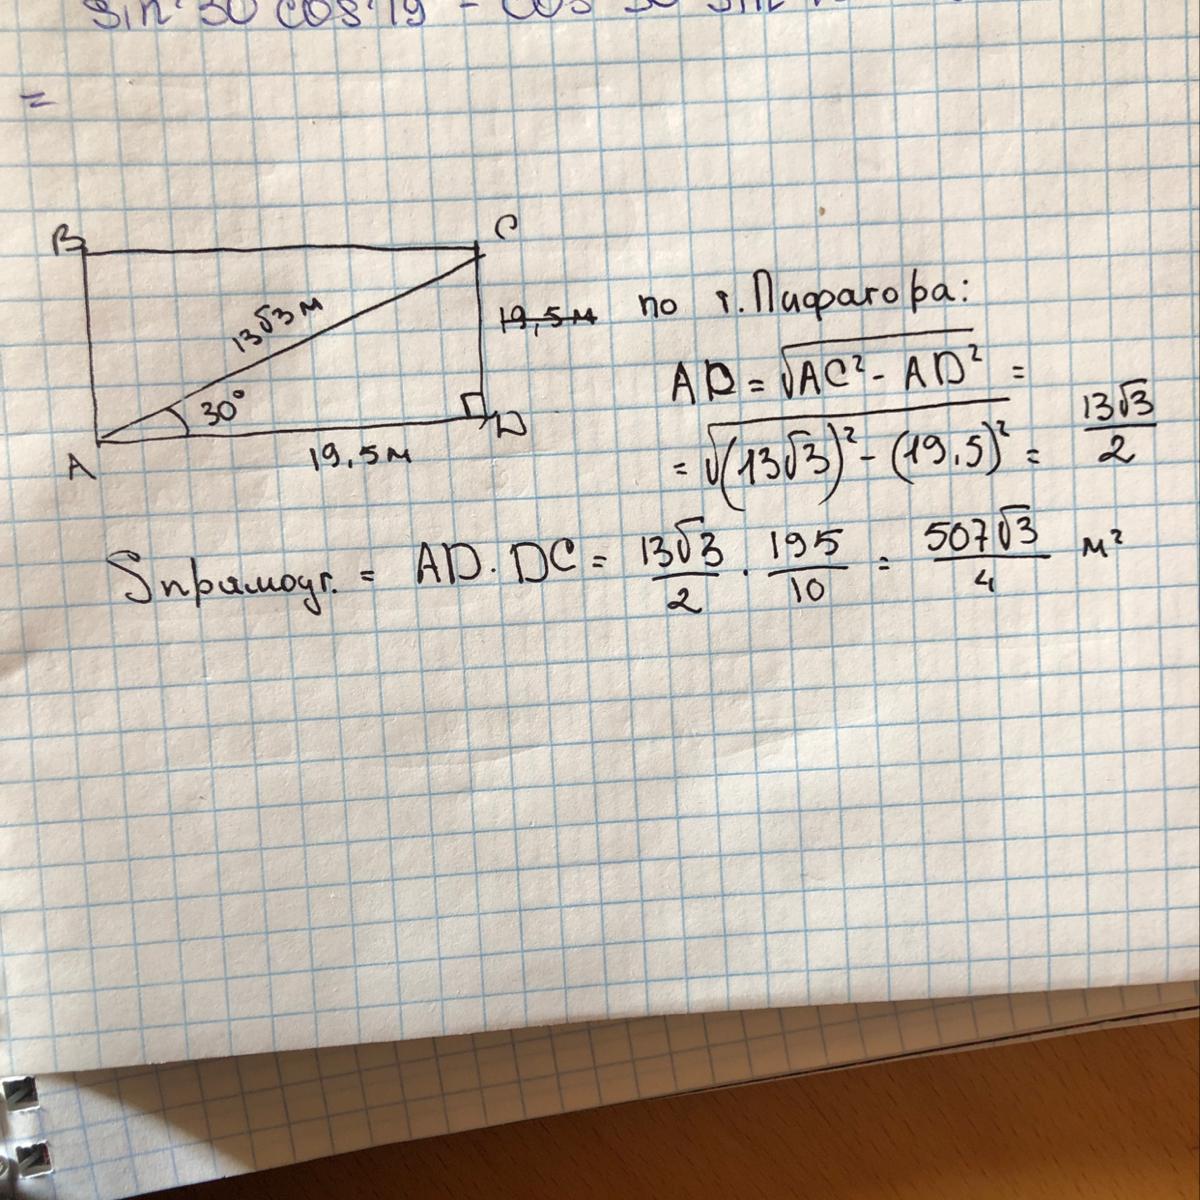 sin 30 cos 19 - cos 30 sin
=
B
C
13√3 м
30°
A
19,5 м
D
19,5 м
по т. Пифагора:
AD = √AC² - AD² =
= √(13√3)² - (19,5)² = 13√3/2
Sпрямоуг. = AD · DC = 13√3/2 · 195/10 = 507√3/4 м²